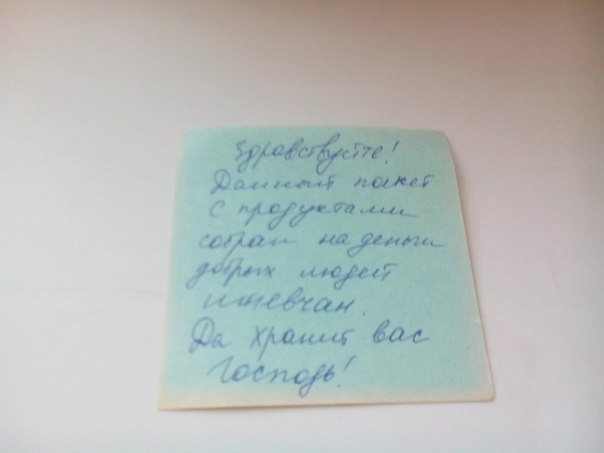 Здравствуйте!
Данный пакет
с продуктами
собран на деньги
добрых людей
ижевчан.
Да хранит вас
Господь!